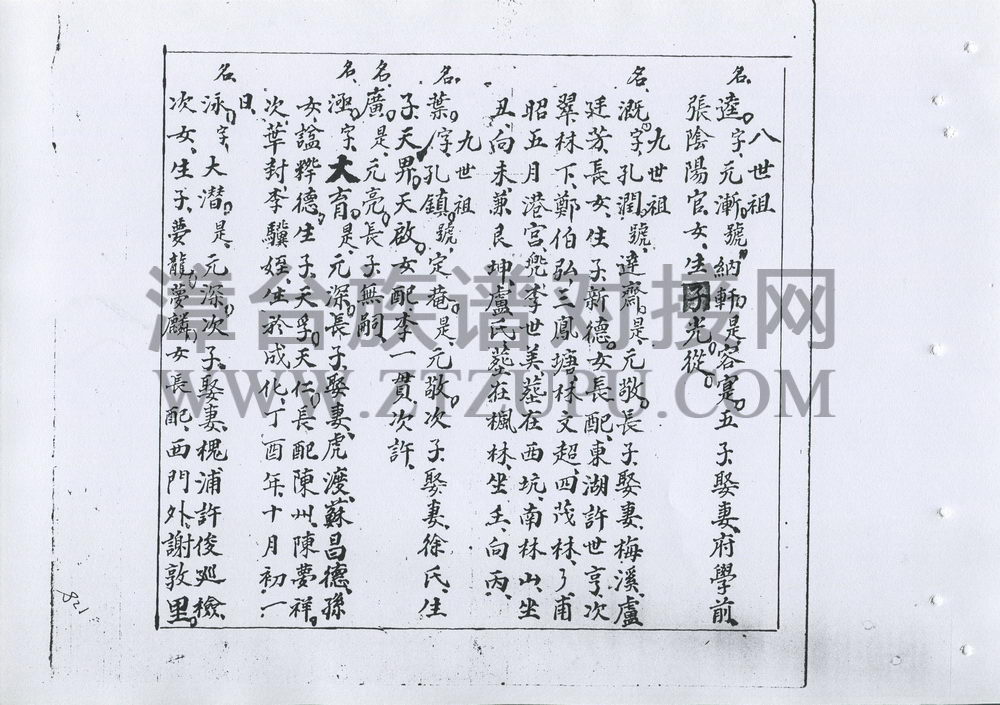 八世祖
名逵字元漸號納軒是容寔五子娶妻府學前
張陰陽官女生子光從
九世祖
名溉字孔潤號達齋是元敬長子娶妻梅溪盧
廷芳長女生子新德女長配東湖許世亨次
翠林下鄭伯弘三鳳塘林文超四茂林了甫
昭五月港宮兜李世美墓在西坑南林山坐
丑向未兼艮坤盧氏葬在楓林坐壬向丙
九世祖
名葉字孔鎮號定菴是元敬次子娶妻徐氏生
子天畀天啟女配李一貫次許
名廣是元亮長子無嗣
名涵字大育是元深長子娶妻虎渡蘇昌德孫
女諡粹德生子天孚天仁長配陳州陳夢祥
次華封李驥姪生於成化丁酉年十月初一
日
名泳字大潛是元深次子娶妻槐浦許俊巡檢
次女生子夢龍夢麟女長配西門外謝敦里
漳台族谱对接网
WWW.ZTZUPU.COM
128